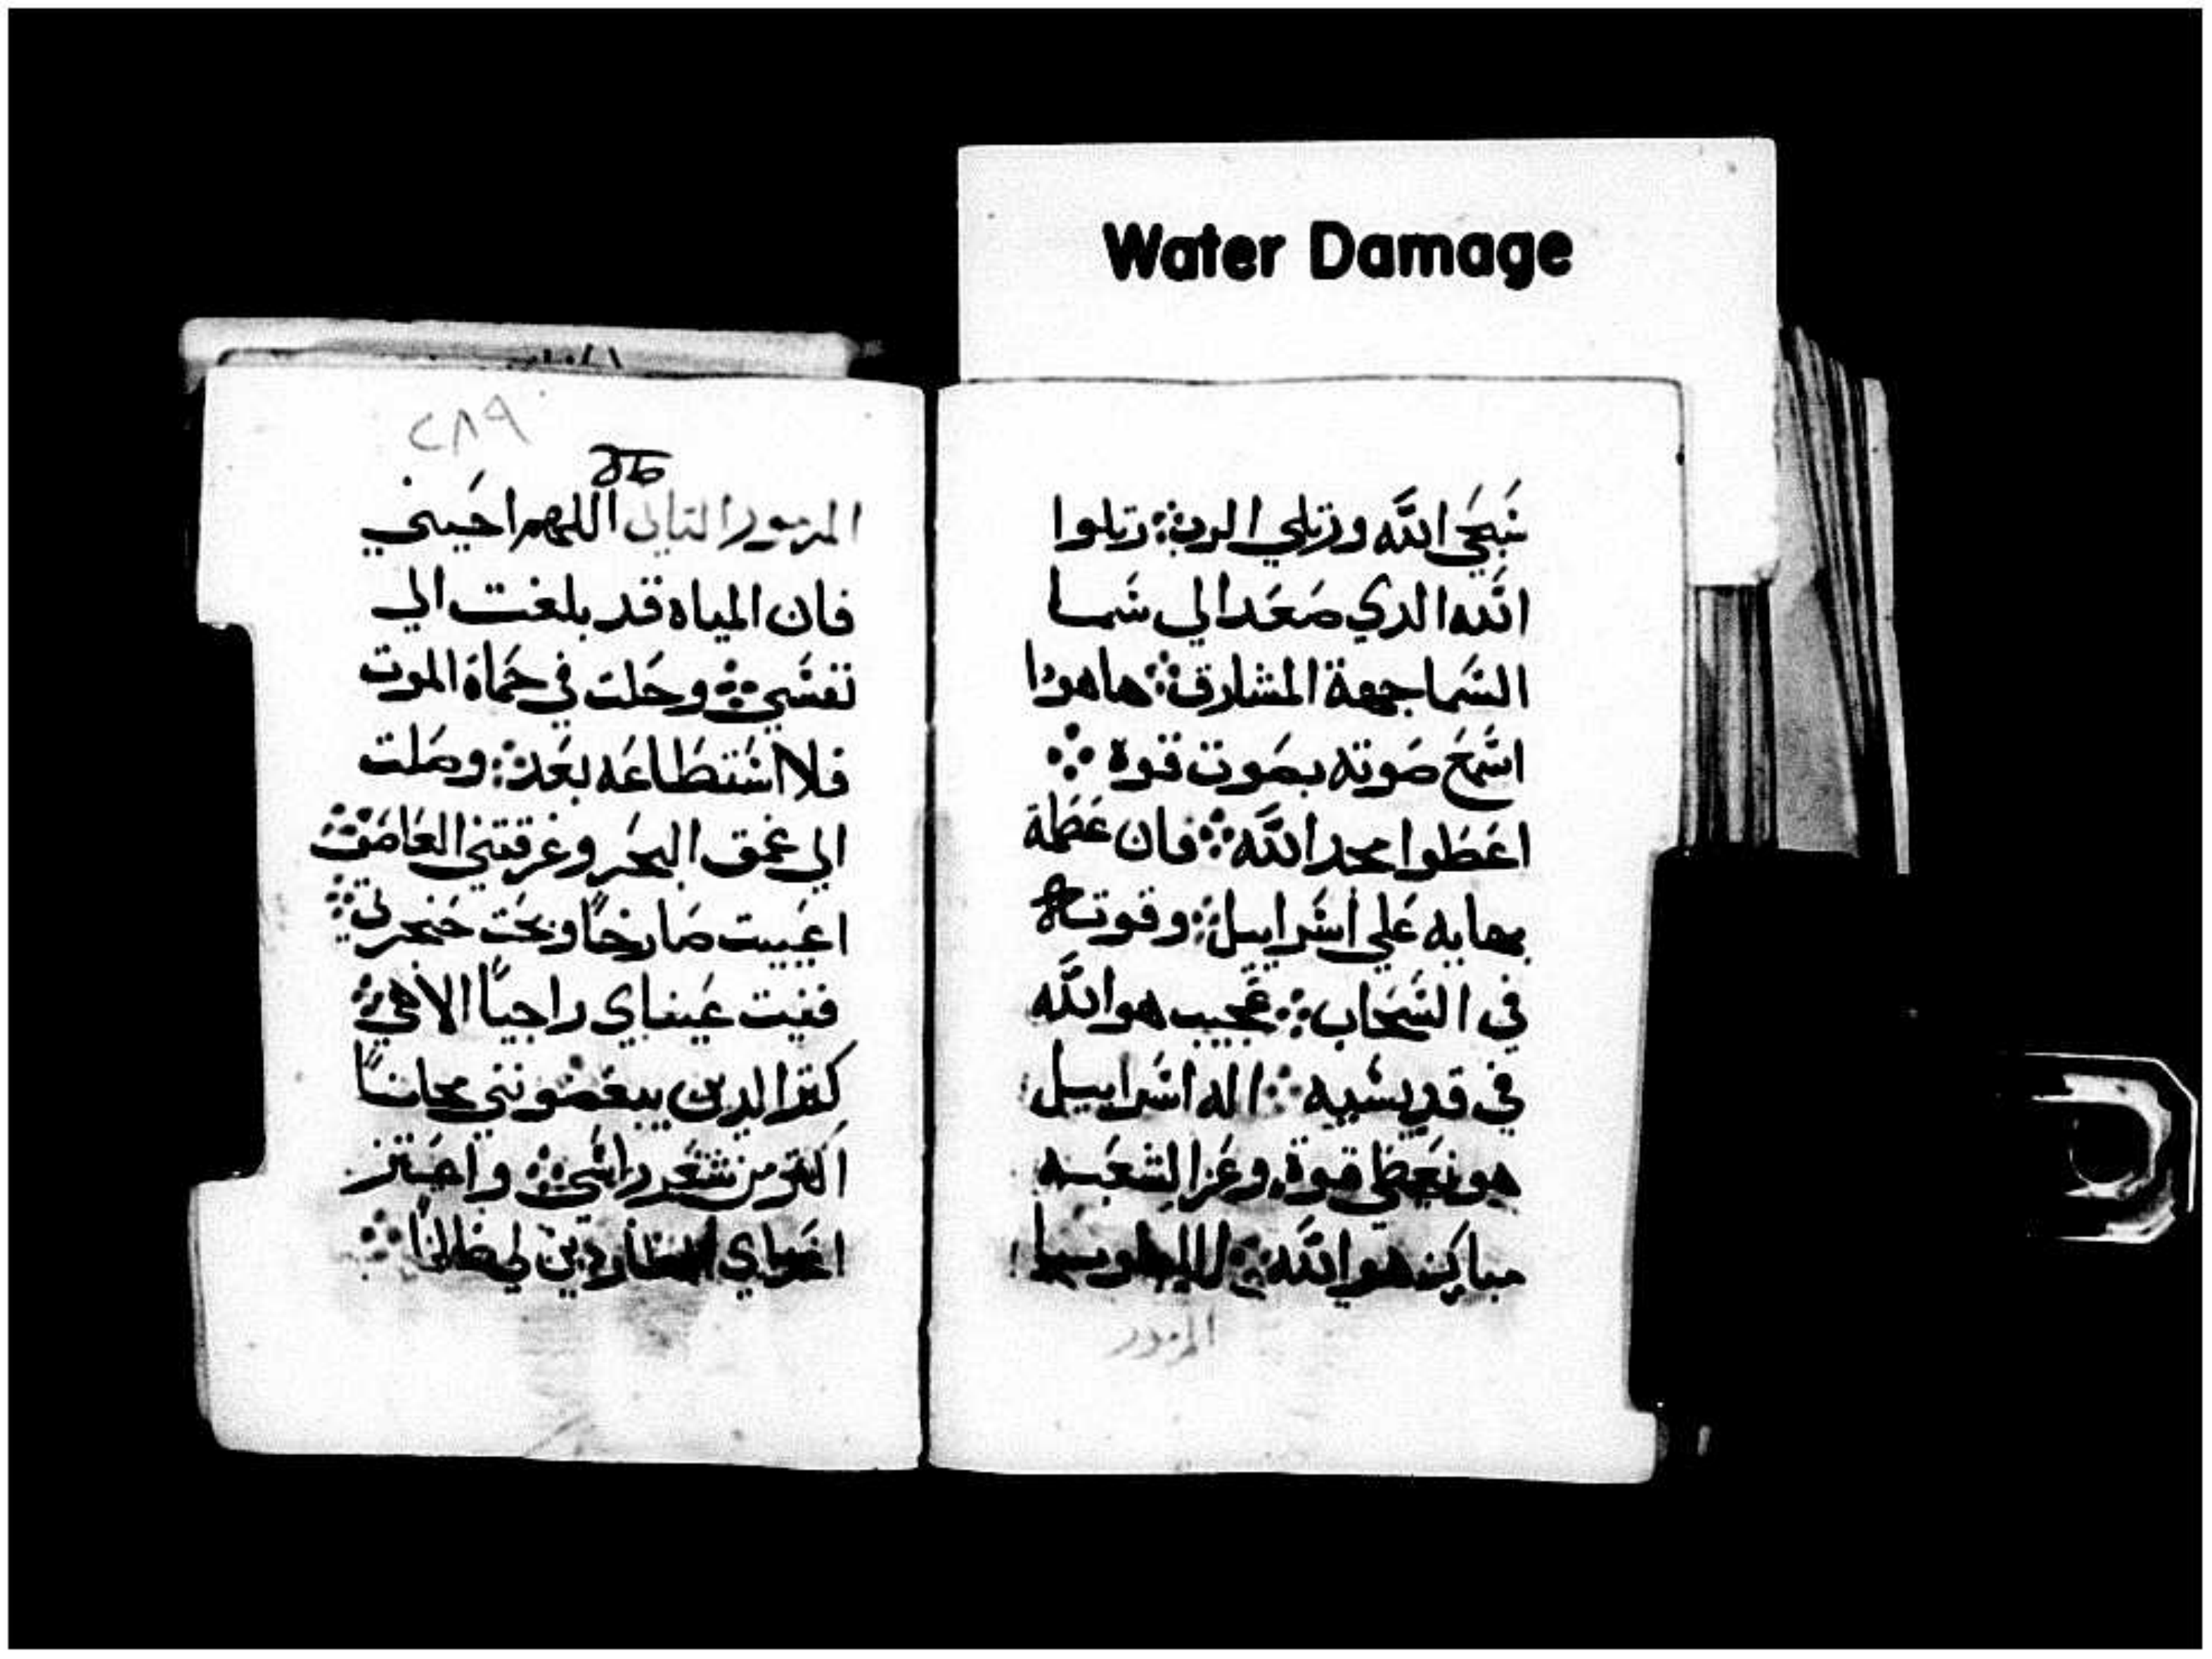 Water Damage
نسبحي الله ورتلي الرب ܀ رتلوا
الله الدي صعد الي سما
السما جهة المشارق ܀ هاهودا
اسمع صوته بصوت قوة ܀
اعطوا مجد الله ܀ فان عظمة
بهايه علي اسراييل ܀ وقوته
في السحاب ܀ عجيب هو الله
في قديسيه ܀ اله اسراييل
هو يعطي قوة وعزا لشعبه
مبارك هو الله ܀ الليلوييا
المزمور
٢٨٩
المزمور التاني اللهم احيني
فان المياه قد بلغت الي
نفسي ܀ وحلت في حماة الموت
فلا استطاعه بعد ܀ وصلت
الي عمق البحر وغرقتني العاصف ܀
اعييت صارخا وبحت حنجرتي ܀
فنيت عيناي راجيا الاهي ܀
كتر الدين يبغضونني مجانا
اكتر من شعر راسي ܀ واعتز
اعداي الطاردين لي ظلما ܀